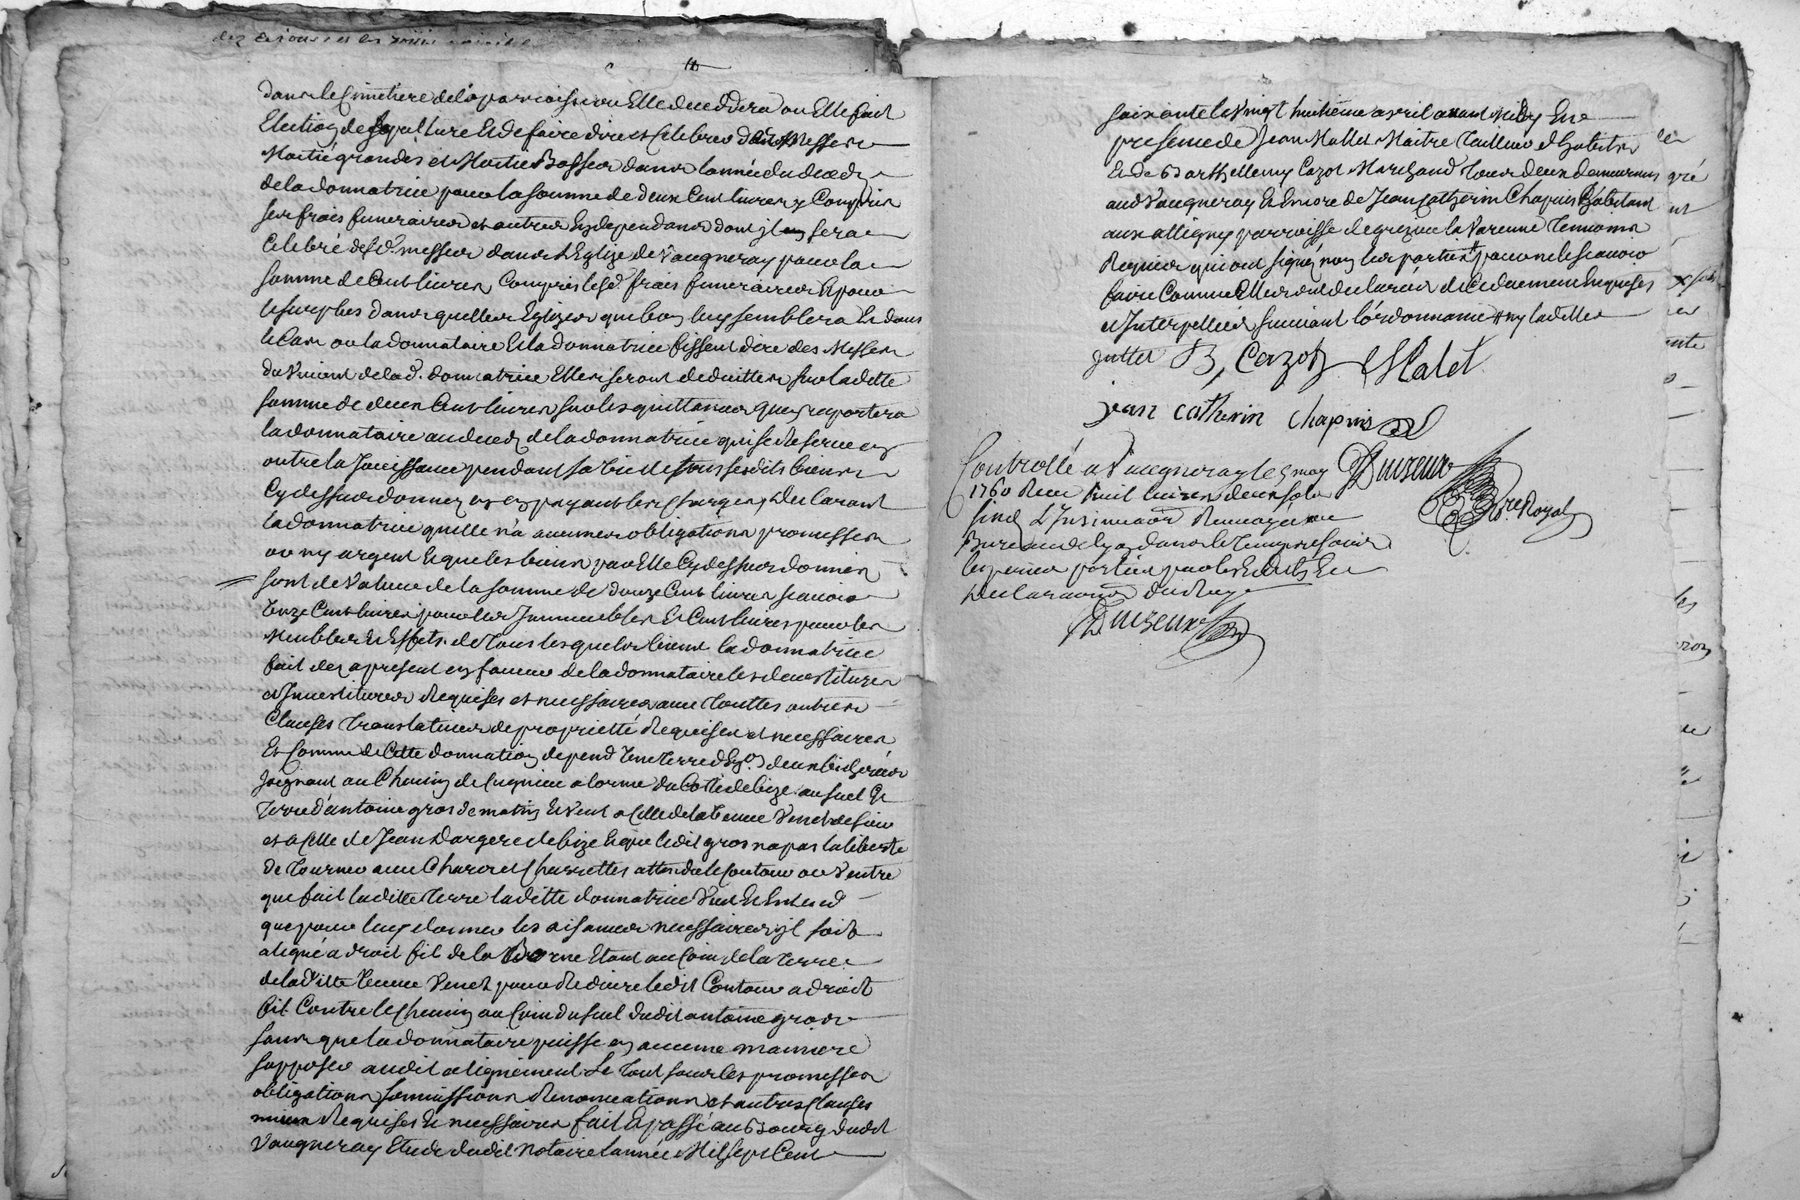 dans le Cimetiere de la parroisse ou Elle decedera ou Elle fait
Election de sepulture Et de faire dire et Celebrer dans Messes
Moitié grandes et Moitié Basses dans l'année du deceds
de la donnatrice pour la somme de deux Cent livres y Compris
ses frais funeraires et autres En dependans dont jl en sera
Celebré des d. messes dans l'Eglize de Vaugneray pour la
somme de Cent livres Compris les d. frais funeraires Et pour
le surplus dans quelles Eglizes que bon luy semblera Et dans
le Cas ou la donnataire Et la donnatrice fissent dire des Messes
du Vivant de lad. donnatrice Elles seront deduittes sur laditte
somme de deux Cent livres sur les quittances que raportera
la donnataire au deceds de la donnatrice qui se Reserve en
outre la Jouissance pendant sa Vie de tous sesdits biens
Cy dessus donnez en en payant les Charges, Declarant
la donnatrice quelle n'a aucunes obligations promesses
ou ny argent Et que les biens par Elle Cy dessus donnés
sont de Valeur de la somme de douze Cent livres scavoir
Onze Cent livres pour les Jmmeubles Et Cent livres pour les
Meubles Et Effets de Tous lesquels biens la donnatrice
fait dez apresent en faveur de la donnataire les devestitures
et Jnvestitures Requises et necessaires avec Touttes autres
Clauses Translatives de proprietté Requises et necessaires
Et Comme de Cette donnation depend Une Terre d'En. deux bicherées
Joignant au Chemin de a lorme du Cotté de bize au suel Et
Terre d'antoine gros de matin Et Vent a Celle de la Veuve Venet de soir
et a Celle de Jean Dargere de bize Et que ledit gros na pas la liberté
de Tourner avec Chars et Charrettes attendu le Contour ou Ventre
que fait laditte Terre laditte donnatrice Veut Et Entend
que pour luy donner les aisances necessaires jl soit
aligné a droit fil de la Borne Etant au Coin de la Terre
de laditte Veuve Venet pour Reduire ledit Contour a droit
fil Contre le Chemin au Coin du suel dudit antoine gros
sans que la donnataire puisse en aucune maniere
sopposer audit alignement Le Tout sous les promesses
obligations soumissions Renonciations et autres Clauses
mieux Requises Et necessaires fait Et passé au Bourg dudit
Vaugneray Etude dudit Notaire l'année Mil sept Cent
soixante le Vingt huitieme avril avant midy En
presence de Jean Mallet Maitre Tailleur d'habits
Et de Barthellemy Cazot Marchand Tous deux demeurants
aud Vaugneray Et Encore de Jean Catherin Chapuis habitant
aux attignys parroisse de grezieu la Varenne Temoins
Requis qui ont signé non les parties pour ne le scavoir
faire Comme Elles ont declaré de Ce duement Enquises
et Jnterpellées suivant l'ordonnance ny laditte
guttet B, Cazot Malet
jean catherin chapuis
Controllé a Vaugneray le 5 may
1760 Receu huit livres deux sols
six d L'Insinuaon Renvoyée au
Bureau de lyon dans le Temps de soir
les peines portées par les Edits Et
Declarations du Roy
Duizeux
Duizeux
Nre Royal